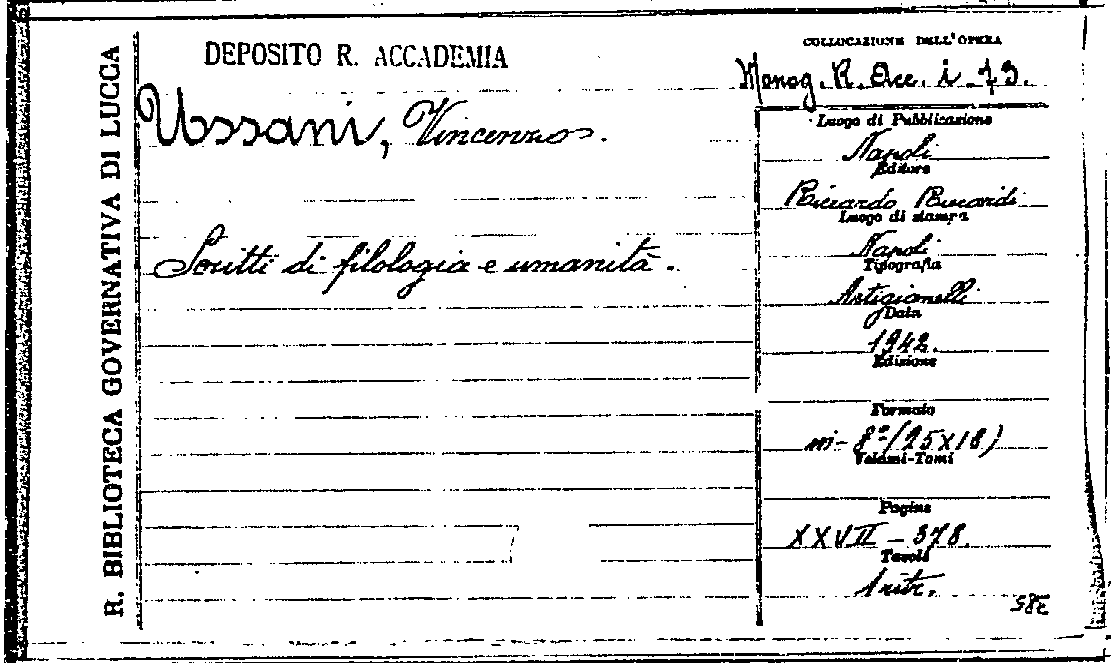 R. BIBLIOTECA GOVERNATIVA DI LUCCA
DEPOSITO R. ACCADEMIA
Ussani, Vincenzo.
Scritti di filologia e umanità.
COLLOCAZIONE DELL'OPERA
Monog. R. Acc. i - 73.
Luogo di Pubblicazione
Napoli
Editore
Riccardo Ricciardi
Luogo di stampa
Napoli
Tipografia
Artigianelli
Data
1942.
Edizione
Formato
in-8° (25×18)
Volumi-Tomi
Pagine
XXVII - 378.
Tavole
1 ritr.